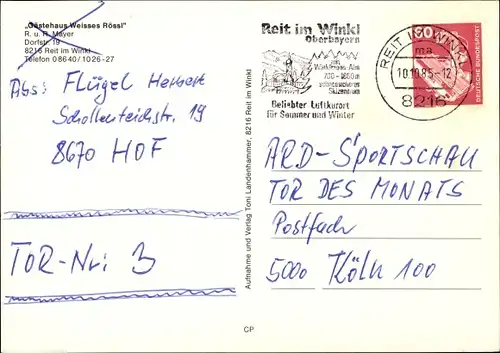 „Gästehaus Weisses Rössl“
R. u. R. Mayer
Dorfstr. 19
8216 Reit im Winkl
Telefon 08640/1026-27
Abs: Flügel Herbert
Schollenteichstr. 19
8670 HOF
TOR-Nr: 3
Aufnahme und Verlag Toni Landenhammer, 8216 Reit im Winkl
CP
Reit im Winkl
Oberbayern
mit
Winklmoos-Alm
700-1800m
schneesicheres
Skizentrum
Beliebter Luftkurort
für Sommer und Winter
REIT IM WINKL
ma
10.10.85-12
8216
DEUTSCHE BUNDESPOST
ARD-SPORTSCHAU
TOR DES MONATS
Postfach
5000 Köln 100